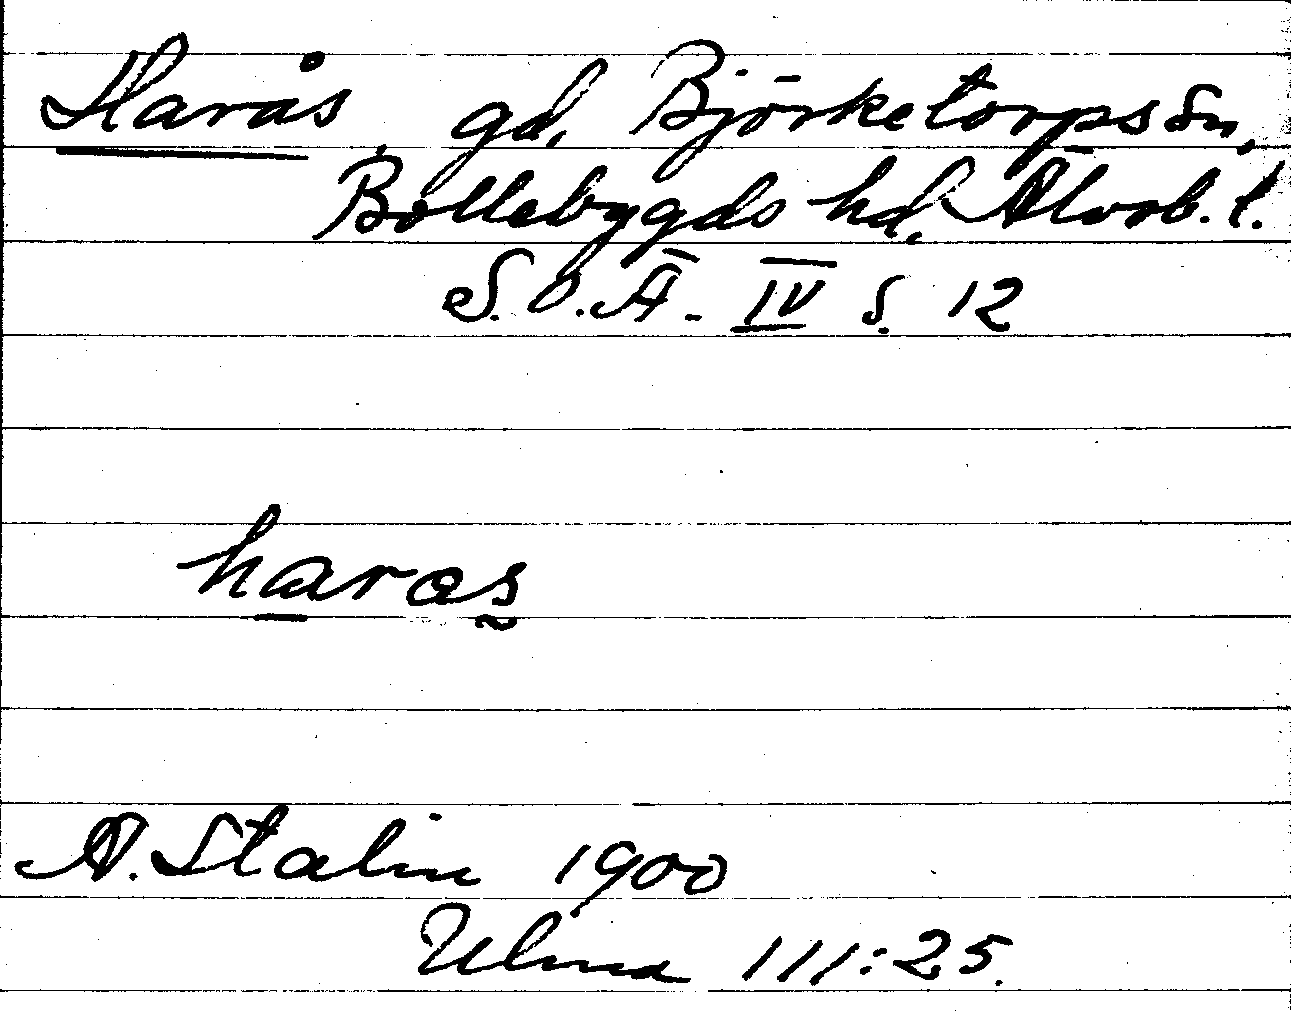 Harås gd, Björketorps sn,
Bollebygds hd, Älvsb. l.
S.O.Ä. IV s. 12
haras
A. Stalin 1900
Ulma 111:25.